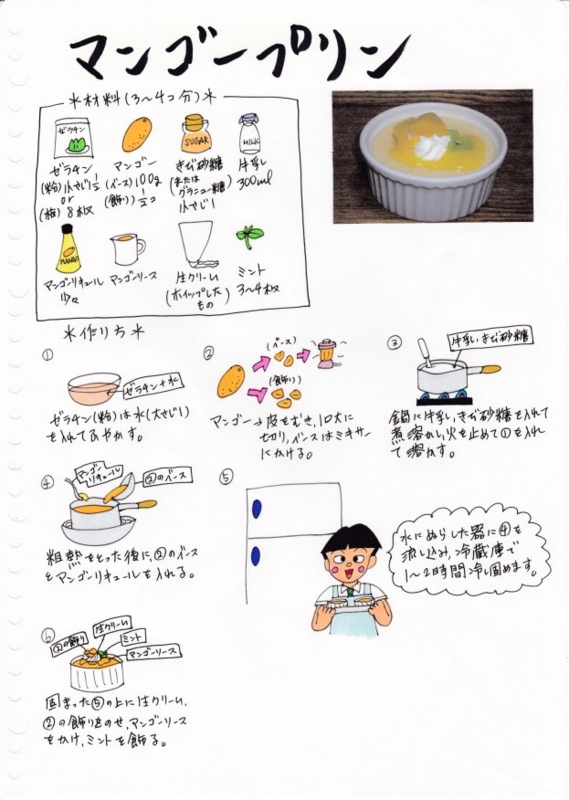 マンゴープリン
*材料(3〜4コ分)*
ゼラチン
SUGAR
MILK
ゼラチン
(粉)小さじ1½
or
(板)8枚
マンゴー
(ベース)100g
(飾り)1/2コ
きび砂糖
(または
グラニュー糖)
小さじ1
牛乳
300ml
MANGO
マンゴーリキュール
少々
マンゴーソース
生クリーム
(ホイップした
もの)
ミント
3〜4枚
*作り方*
①
ゼラチン+水
ゼラチン(粉)は水(大さじ1)
を入れてふやかす。
②
(ベース)
(飾り)
マンゴーは皮をむき、1口大に
切り、ベースはミキサー
にかける。
③
牛乳、きび砂糖
鍋に牛乳、きび砂糖を入れて
煮溶かし火を止めて①を入れ
て溶かす。
④
マンゴー
リキュール
②のベース
粗熱をとった後に、②のベース
とマンゴーリキュールを入れる。
⑤
水にぬらした器に④を
流し込み、冷蔵庫で
1〜2時間冷し固めます。
⑥
②の飾り
生クリーム
ミント
マンゴーソース
固まった⑤の上に生クリーム、
②の飾りをのせ、マンゴーソース
をかけ、ミントを飾る。